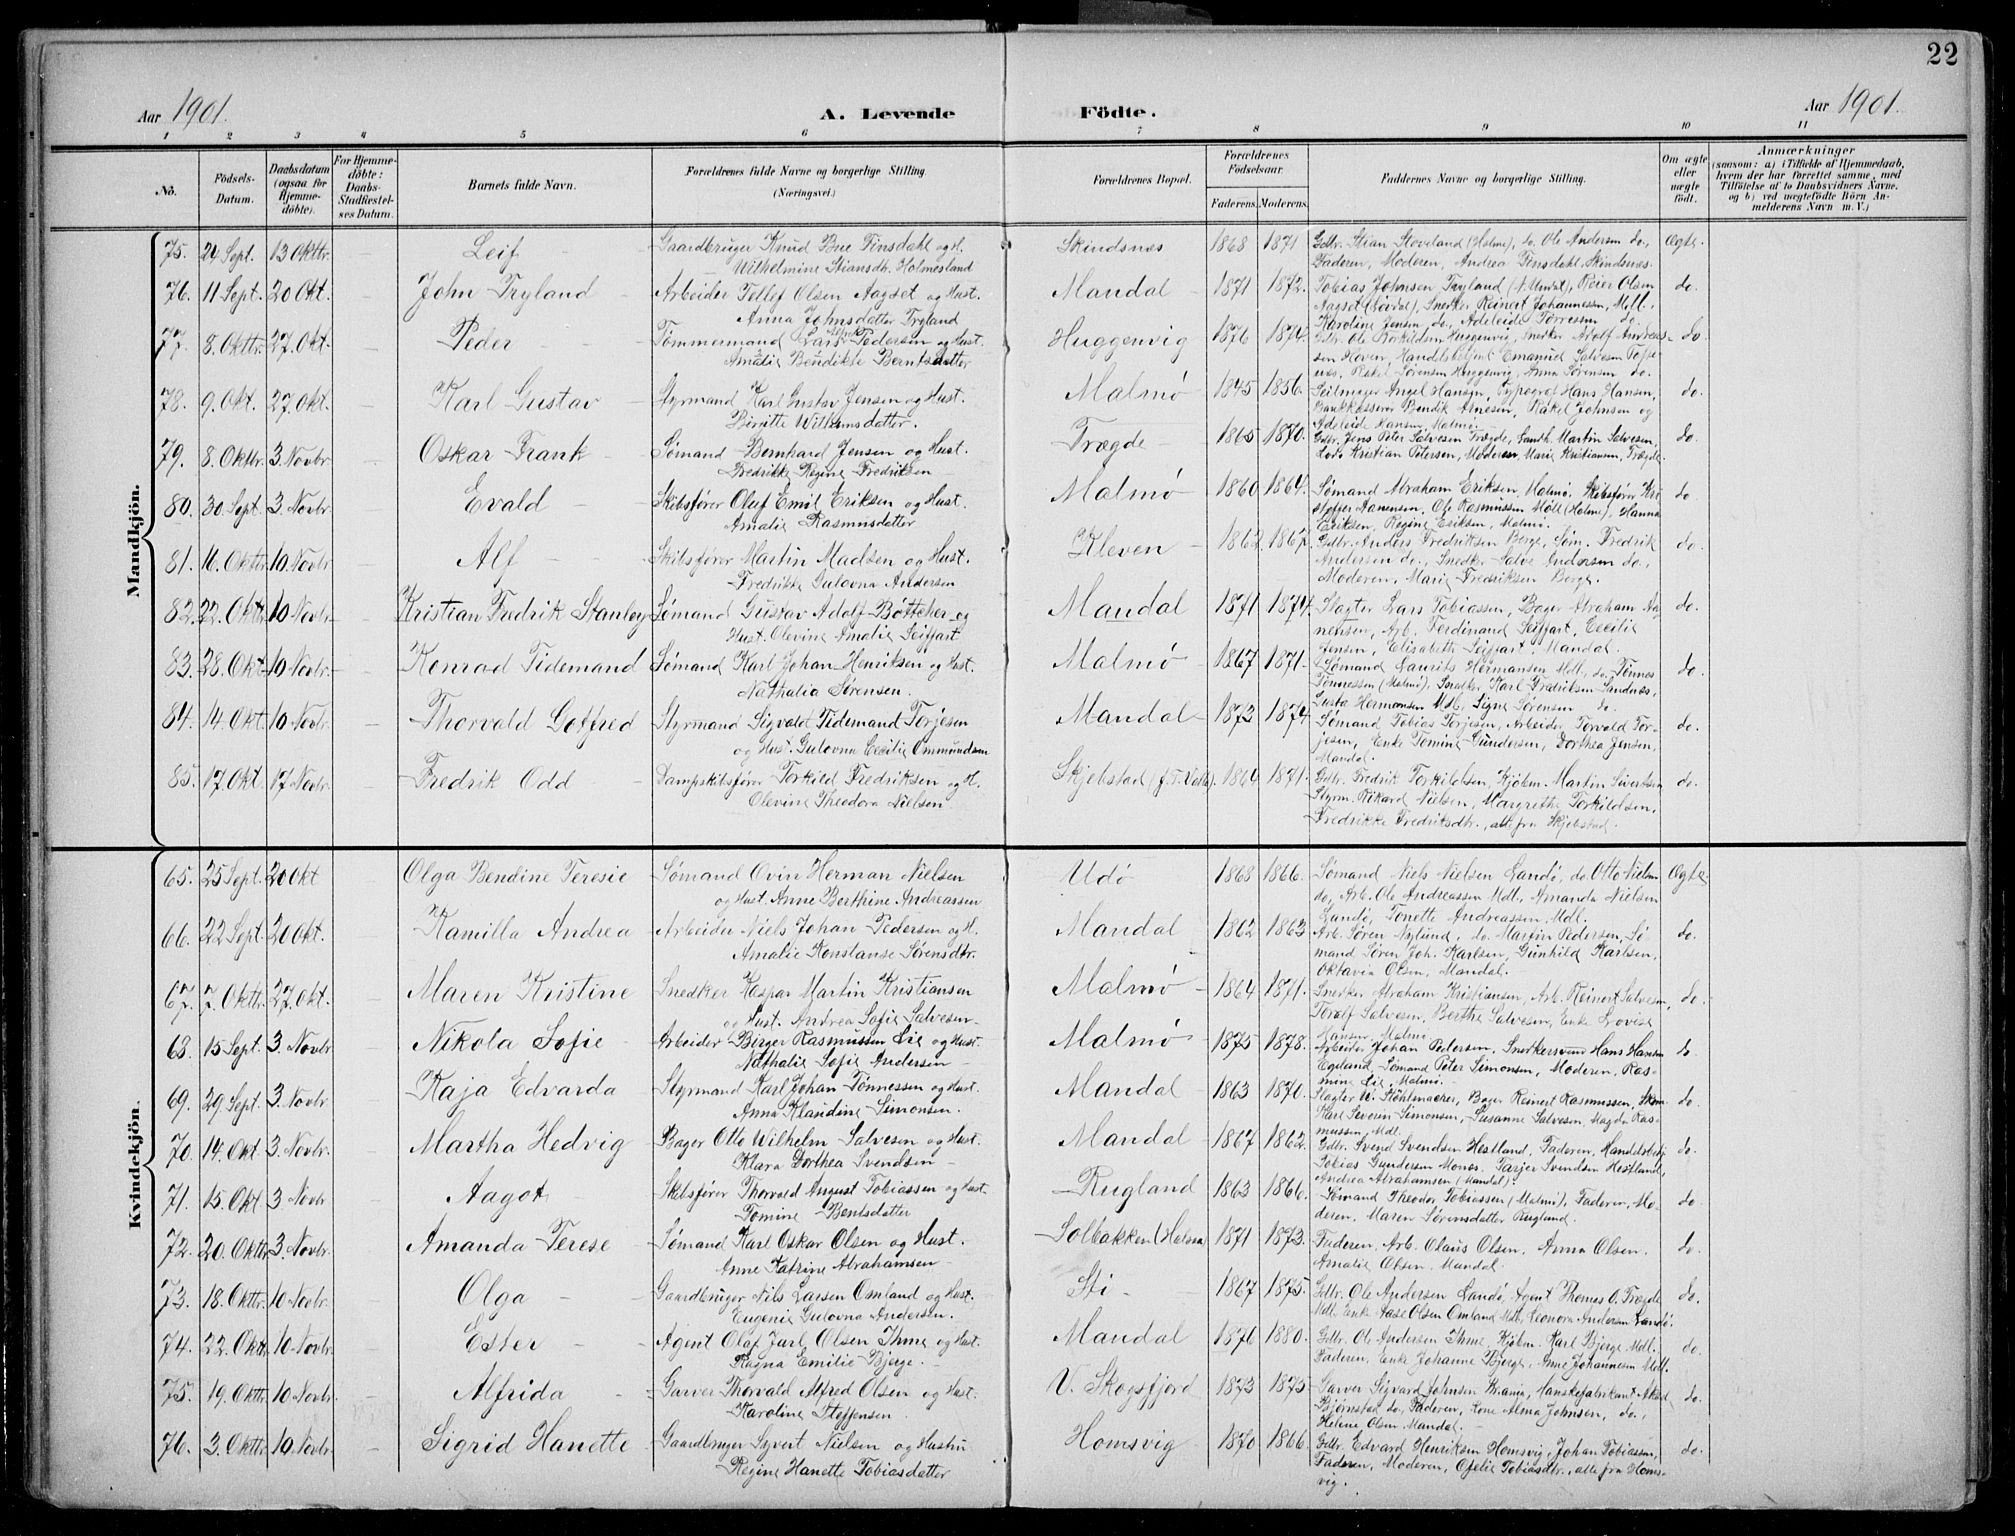 22
Aar 1901.
A. Levende Födte.
Aar 1901.
1 2 3 4 5 6 7 8 9 10 11
Nö.
Födsels-Datum.
Daabsdatum (ogsaa for Hjemme-döbte).
For Hjemme-döbte: Daabs-Stadfæstel-ses Datum.
Barnets fulde Navn.
Forældrenes fulde Navne og borgerlige Stilling. (Næringsvei.)
Forældrenes Bopæl.
Forældrenes Födselsaar.
Faderens. Moderens.
Faddernes Navne og borgerlige Stilling.
Om ægte eller uægte födt.
Anmærkninger
(saasom: a) i Tilfælde af Hjemmedaab, hvem der har forrettet samme, med Tilföielse af to Daabsvidners Navne. og b) ved uægtefödte Börn An-melderens Navn m. V.)
Mandkjön.
75. 24 Sept. 13 Oktbr. Leif Gaardbruger Knud Bue Finsdahl og H. Skindsnæs 1868 1871 Gdbr. Stian Stoveland (Holme), do. Ole Andersen do., Ægte.
Wilhelmine Stiansdtr. Holmesland Faderen, Moderen, Andrea Finsdahl, Skindsnæs.
76. 11 Sept. 20 Okt. John Tryland Arbeider Tellef Olsen Aagset og Hust. Mandal 1871 1872. Tobias Johnsen Tryland (N. Undal), Reier Olsen do.
Anna Johnsdatter Tryland Aagset, Snerker Reinert Johannessen, Mdl.,
Karoline Jensen do., Adeleide Torressen do.
77. 8. Oktbr. 27. Okt. Peder Tømmermand Lars Alfred Pedersen og Hust. Huggenvig 1876 1874. Gdbr. Ole Torkildsen Huggenvig, Snerker Adolf Andreas- do.
Amalie Bendikte Berntsdatter sen Hoven, Handelsbetjent Emanuel Salvesen
Rakel Sørensen Huggenvig, Anna Sørensen do.
78. 9. Okt. 27. Okt. Karl Gustav Styrmand Karl Gustav Jensen og Hust. Malmø 1845 1856. Seilmager Angel Hansen, Typograf Hans Hansen, do.
Birgitte Wilhelmsdatter. Bankkasserer Bendik Arnesen, Rakel Johnsen og
Adeleide Hansen, Malmø.
79. 8. Oktbr. 3. Novbr. Oskar Frank Sømand Bernhard Jensen og Hust. Trægde 1865 1870. Gdbr. Jens Peter Salvesen Trægde, Landh. Martin Salvesen, do.
Fredrikke Regine Fredriksen Lods Kristian Petersen, Moderen, Marie Kristiansen, Trægde.
80. 30. Sept. 3. Novbr. Evald Skibsfører Oluf Emil Eriksen og Hust. Malmø 1860 1864. Sømand Abraham Eriksen, Malmø, Skibsfører Kri- do.
Amalie Rasmusdatter stoffer Aanensen, Ole Rasmussen Møll (Holme), Hanna
Eriksen, Regine Eriksen, Malmø.
81. 16. Oktbr. 10. Novbr. Alf Skibsfører Martin Madsen og Hust. Kleven 1862 1867. Gdbr. Anders Fredriksen Berge, Søm. Fredrik do.
Fredrikke Gulovna Andersen Andersen do., Snedker Salve Andersen do.,
Moderen, Marie Fredriksen Berge.
82. 22. Oktbr. 10 Novbr. Kristian Fredrik Stanley Sømand Gustav Adolf Bøttcher og Mandal 1871 1874. Slagter Lars Tobiassen, Bager Abraham Aa- do.
Hust. Olevine Amalie Seiffart nensen, Arb. Ferdinand Seiffart, Cecilie
Jensen, Elisabeth Seiffart, Mandal.
83. 28. Okt. 10 Novbr. Konrad Tidemand Sømand Karl Johan Henriksen og Hust. Malmø 1867 1871. Sømand Laurits Hermansen Mdl., do. Tønnes do.
Nathalia Sørensen. Tønnessen (Malmø), Snedker Karl Fredriksen Sandnæs,
Gusta Hermansen Mdl., Signe Sørensen do.
84. 14. Okt. 10 Novbr. Thorvald Gotfred Styrmand Sigvald Tidemand Torjesen Mandal 1873 1874. Sømand Tobias Torjesen, Arbeider Torvald Tor- do.
og Hust. Gulovna Cecilie Ommundsen jesen, Enke Tomine Gundersen, Dorthea Jensen,
Mandal.
85. 17. Okt. 17 Novbr. Fredrik Odd Dampskibsfører Torkild Fredriksen og H. Skjebstad 1864 1871. Gdbr. Fredrik Torkildsen, Kjøbm. Martin Sivertsen do.
Olevine Theodora Nielsen Styrm. Rikard Nielsen, Margrethe Torkildsen,
Fredrikke Fredriksdtr., alle fra Skjebstad.
Kvindekjön.
65. 25 Sept. 20 Okt Olga Bendine Teresie Sømand Ovin Herman Nielsen Udø 1868 1866. Sømand Niels Nielsen Landø, do. Otto Nielsen Ægte
og Hust. Anne Berthine Andreassen do, Arb. Ole Andreassen Mdl., Amanda Nielsen
Landø, Tonette Andreassen, Mdl.
66. 22 Sept. 20 Okt. Kamilla Andrea Arbeider Niels Johan Pedersen og H. Mandal 1862 1863. Arb. Søren Nylund, do. Martin Pedersen, Sø- do.
Amalie Konstanse Sørensdtr. mand Søren Joh. Karlsen, Gunhild Karlsen,
Oktavia Olsen, Mandal.
67. 7. Oktbr. 27 Okt. Maren Kristine Snedker Kaspar Martin Kristiansen Malmø 1864 1871. Snerker Abraham Kristiansen, Arb. Reinert Salvesen, do.
og Hust. Andrea Sofie Salvesen Toralf Salvesen, Berthe Salvesen, Enke Lovise
Hansen, Malmø.
68. 15 Sept. 3. Novbr. Nikola Sofie Arbeider Birger Rasmussen Lie og Hust. Malmø 1875 1878. Arbeider Johan Pedersen, Snerkersvend Hans Hansen do.
Nathalie Sofie Andersen Egeland, Sømand Peter Simonsen, Moderen, Ras-
mine Lie, Malmø.
69. 29. Sept. 3. Novbr. Kaja Edvarda Styrmand Karl Johan Tønnessen og Hust. Mandal 1863 1870. Slagter W. Köhlmacher, Bager Reinert Rasmussen, do.
Anna Klaudine Simonsen. Karl Severin Simonsen, Susanne Salvesen, Magda Ras-
mussen, Mdl.
70. 14. Okt. 3. Novbr. Martha Hedvig Bager Otto Wilhelm Salvesen og Hust. Mandal 1867 1862. Gdbr. Svend Svendsen Hestland, Faderen, Handelsbetj. do.
Klara Dorthea Svendsen Tobias Gundersen Mones, Tarjer Svendsen Hestland,
Andrea Abrahamsen (Mandal).
71. 15. Okt. 3 Novbr. Aagot Skibsfører Thorvald August Tobiassen og Hust. Rugland 1863 1866. Sømand Theodor Tobiassen (Malmø), Faderen, Mo- do.
Tomine Berntsdatter deren, Maren Sørensdatter Rugland.
72. 20. Oktbr. 3. Novbr. Amanda Terese Sømand Karl Oskar Olsen og Hust. Solbakken (Holme) 1871 1873. Faderen, Arb. Olaus Olsen, Anna Olsen, do.
Anne Katrine Abrahamsen Amalie Olsen, Mandal.
73. 18. Oktbr. 10 Novbr. Olga Gaardbruger Nils Larsen Omland og Hust. Sti 1867 1875. Gdbr. Ole Andersen Landø, Agent Thomas O. Trægde do.
Eugenie Gulovna Andersen. Mdl. Enke Aase Olsen Omland Mdl., Leonora Andersen Landø.
74. 22. Oktbr. 10 Novbr. Ester Agent Olaf Jarl Olsen Ihme og Hust. Mandal 1876 1880. Gdbr. Ole Andersen Ihme, Kjøbm. Karl Bjerge Mdl. do.
Ragna Emilie Bjerge. Faderen, Enke Johanne Bjerge, Anne Johannesen Mdl.
75. 19. Oktbr. 10 Novbr. Alfrida Garver Thorvald Alfred Olsen og Hust. V. Skogsfjord 1873 1875 Garver Sigvard Johnsen, Hanskefabrikant do.
Karoline Steffensen. Bjørnstad do, Faderen, Kone Alma Johnsen, do.,
Helene Olsen Mandal.
76. 3. Oktbr. 10. Novbr. Sigrid Hanette Gaardbruger Syvert Nielsen og Hustru Homsvig 1870 1866 Gdbr. Edvard Henriksen Homsvig, Johan Tobiassen, do.
Regine Hanette Tobiasdatter Faderen, Moderen, Ofelie Tobiasdtr., alle fra Homs-
vig.